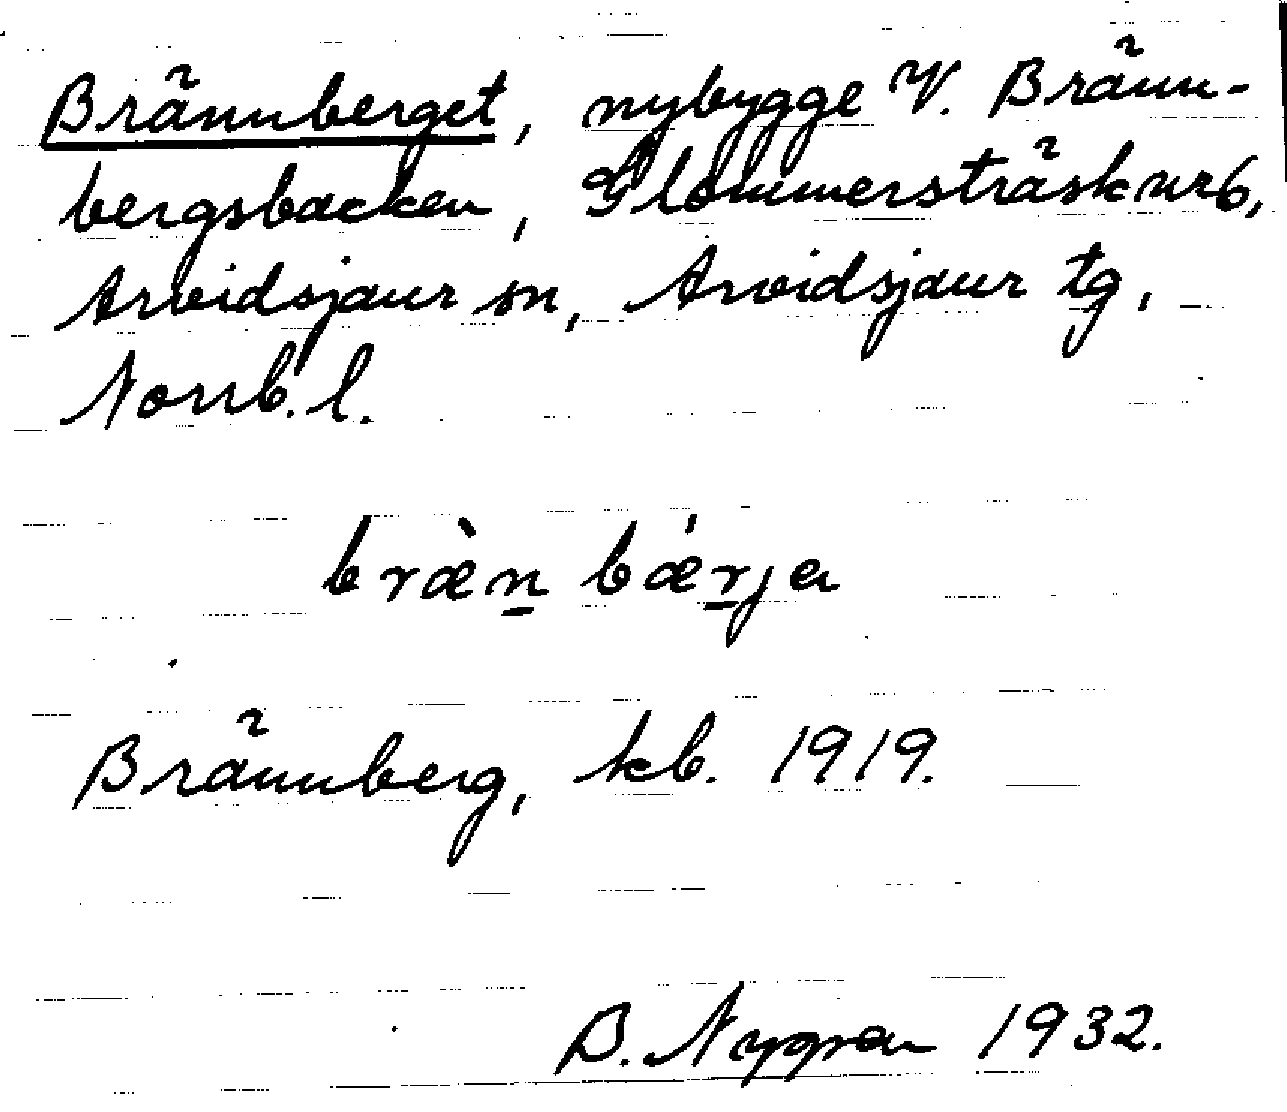 Brännberget, nybygge V. Bränn-
bergsbacken, Glommersträsk nr 6,
Arvidsjaur sn, Arvidsjaur tg,
Norrb. l.
bræ̀n̲ bǽr̲ja
Brännberg, kb. 1919.
B. Nygren 1932.